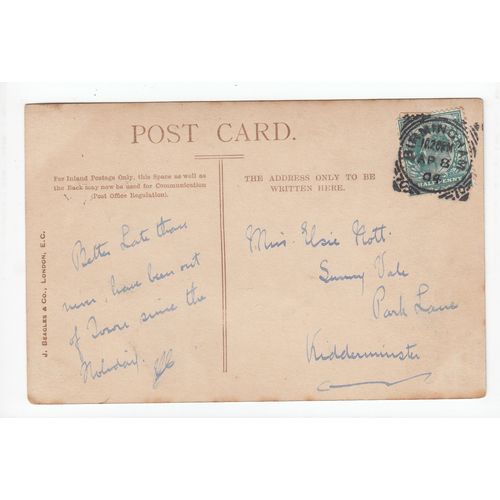 POST CARD.
For Inland Postage Only, this Space as well as
the Back may now be used for Communication
(Post Office Regulation).
THE ADDRESS ONLY TO BE
WRITTEN HERE.
J. BEAGLES & CO., LONDON, E.C.
Better Late than
never, have been out
of Town since the
Holiday.
Miss Elsie Nott.
Sunny Vale
Park Lane
Kidderminster
BIRMINGHAM
AP 8
04
HALFPENNY